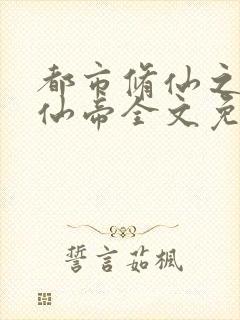 都市脩仙之
仙帝全文免
誓言茹楓